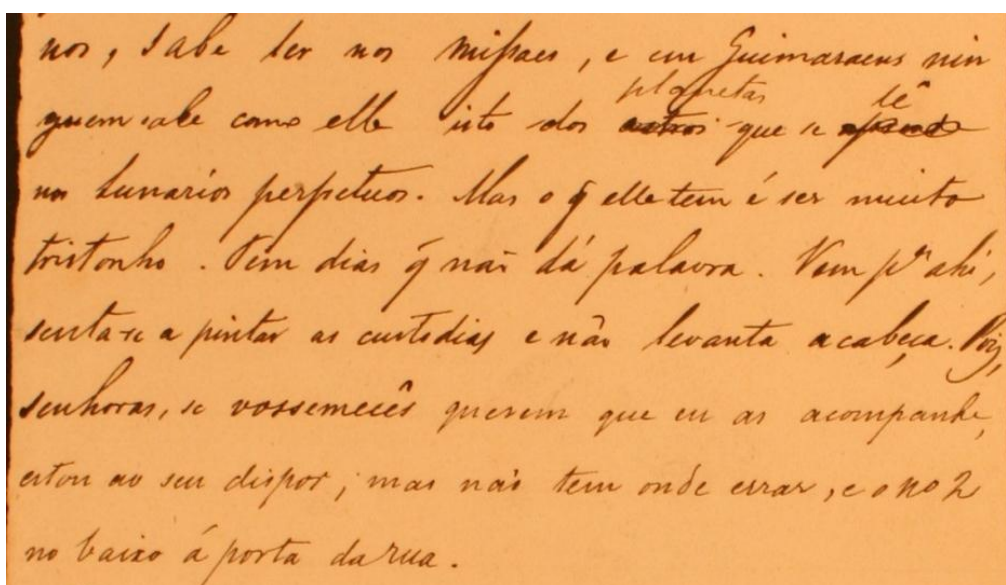 nos, sabe ler nos missaes, e em Guimaraens nin
planetas lê
guem sabe como elle isto dos astros que se aprende
nos Lunarios perpetuos. Mas o q̃ elle tem é ser muito
tristonho. Tem dias q̃ não dá palavra. Vem pª ahi,
senta-se a pintar as custodias e não levanta a cabeça. Pois,
senhoras, se vossemecês querem que eu as acompanhe,
estou ao seu dispor; mas não tem onde errar, e o no 2
no baixo á porta da rua.